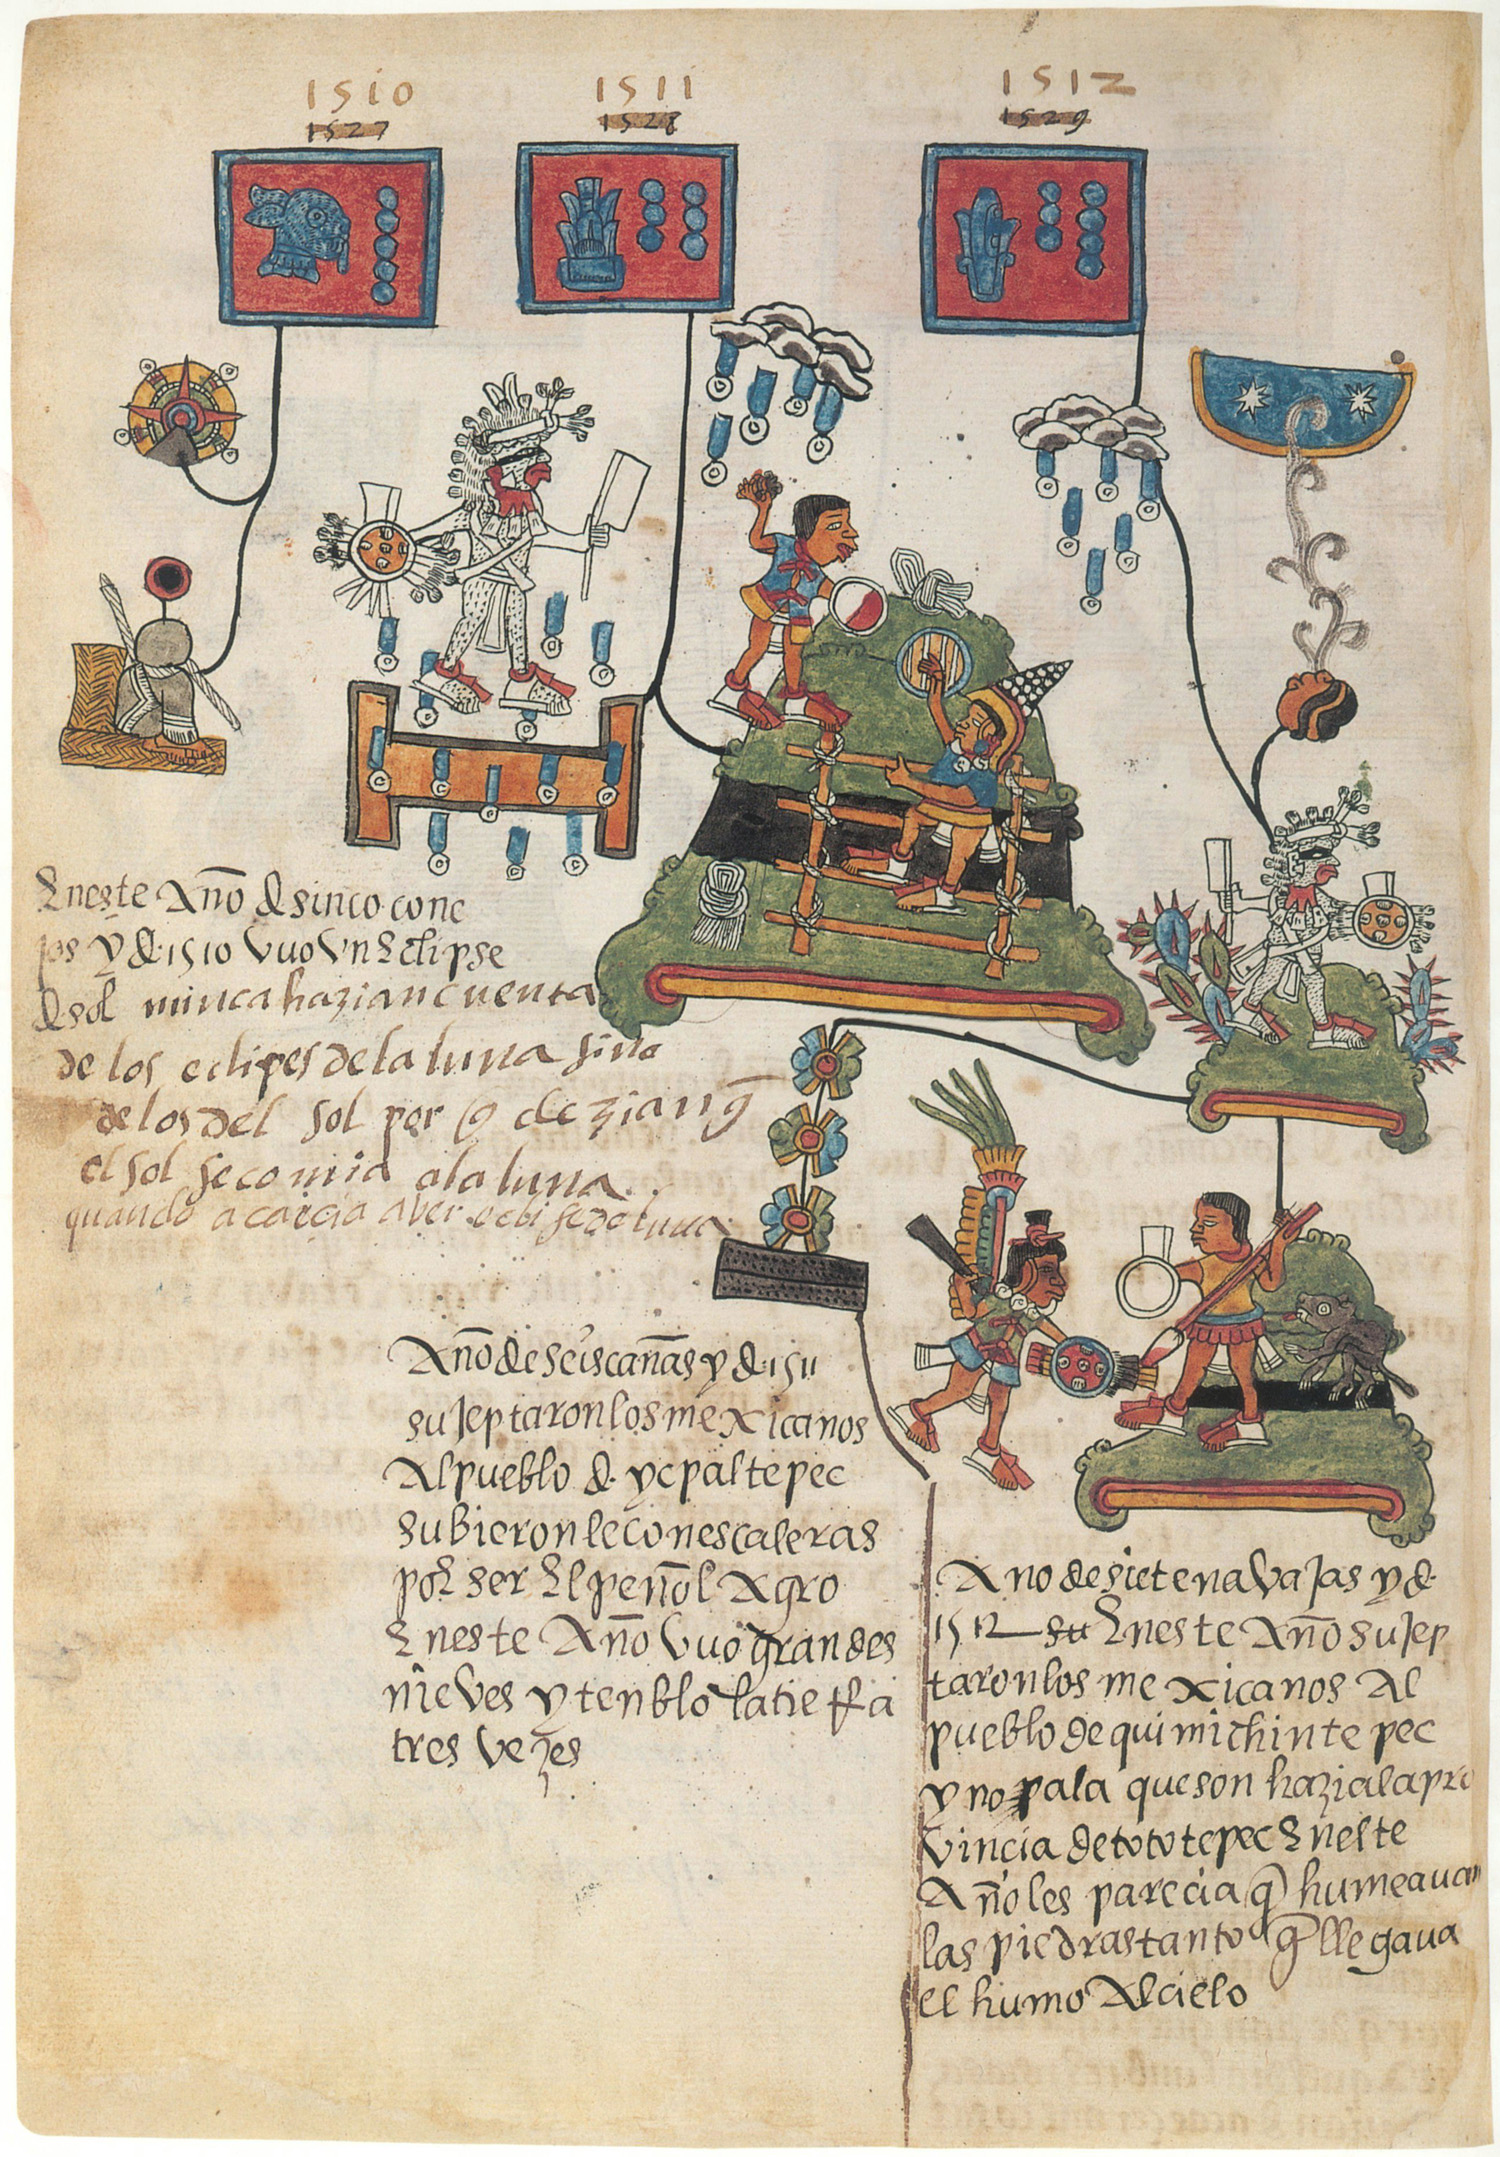 1510
1527
1511
1528
1512
1529
Eneste Año de sinco cone
jos y de 1510 vuo vn Eclipse
de sol nunca hazian cuenta
de los eclipses de la luna sino
de los del sol por q dezian q
el sol se comia a la luna
quando acaecia aver eclipse de luna
Año de seis cañas y de 1511
sujeptaron los mexicanos
Al pueblo de ycpaltepec
subieronle con escaleras
por ser El peñol Agro
Eneste Año vuo grandes
nieves y tenblo la tierra
tres vezes
Ano de siete navajas y de
1512 su Eneste Año sujep
taron los mexicanos Al
pueblo de quimichintepec
y nopala que son hazia la pro
vincia de tototepec Eneste
Año les parecia q humeauan
las piedras tanto q llegaua
el humo Al cielo